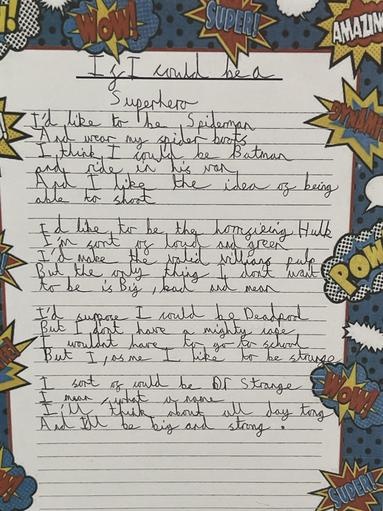 WOW!
SUPER!
AMAZING
If I could be a
Superhero
I'd like to be Spiderman
And wear my spider boots
I think I could be Batman
and ride in his van
And I like the idea of being
able to shoot
I'd like to be the Hulk
I'm sort of loud and green
I'd make the valid villians pulp
But the only thing I dont want
to be is Big, bad and mean
I'd suppose I could be Deadpool
But I dont have a mighty cape
I wouldnt have to go to school
But I, as me I like to be strange
I sort of could be Dr Strange
I mean what a name
I'ill think about all day long
And I'll be big and strong.
POW!
WOW!
SUPER!